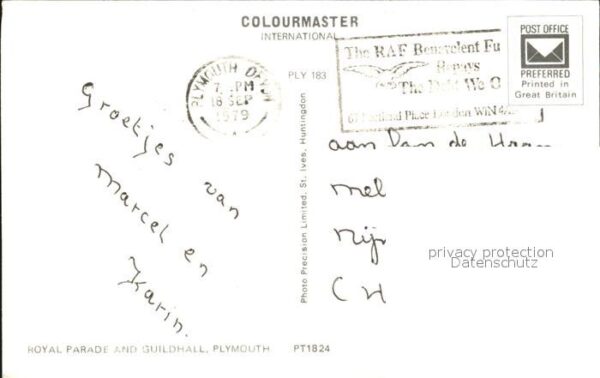 COLOURMASTER
INTERNATIONAL
PLY 183
PLYMOUTH DEVON
7 PM
18 SEP
1979
The RAF Benevolent Fu
Repays
The Debt We O
67 Portland Place London W1N 4
POST OFFICE
PREFERRED
Printed in
Great Britain
Groetjes van
Marcel en
Karin.
Photo Precision Limited, St. Ives, Huntingdon
aan
mel
Nij
CH
privacy protection
Datenschutz
ROYAL PARADE AND GUILDHALL, PLYMOUTH PT1824